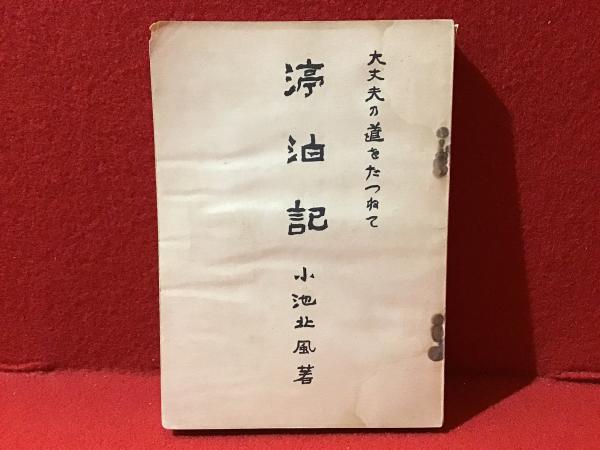 大丈夫の道をたつねて
渟泊記
小池北風著